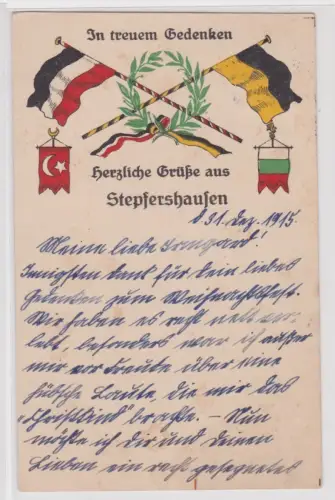 In treuem Gedenken
Herzliche Grüße aus
Stepfershausen
d 31. Dez. 1915.
Meine liebe Irmgard!
Innigsten Dank für dein liebes
Gedenken zum Weihnachtsfest.
Wir haben es recht nett ver-
lebt, besonders war ich außer
mir vor Freude über eine
hübsche Laute, die mir das
"Christkind" brachte. – Nun
möchte ich dir und deinen
Lieben ein recht gesegnetes